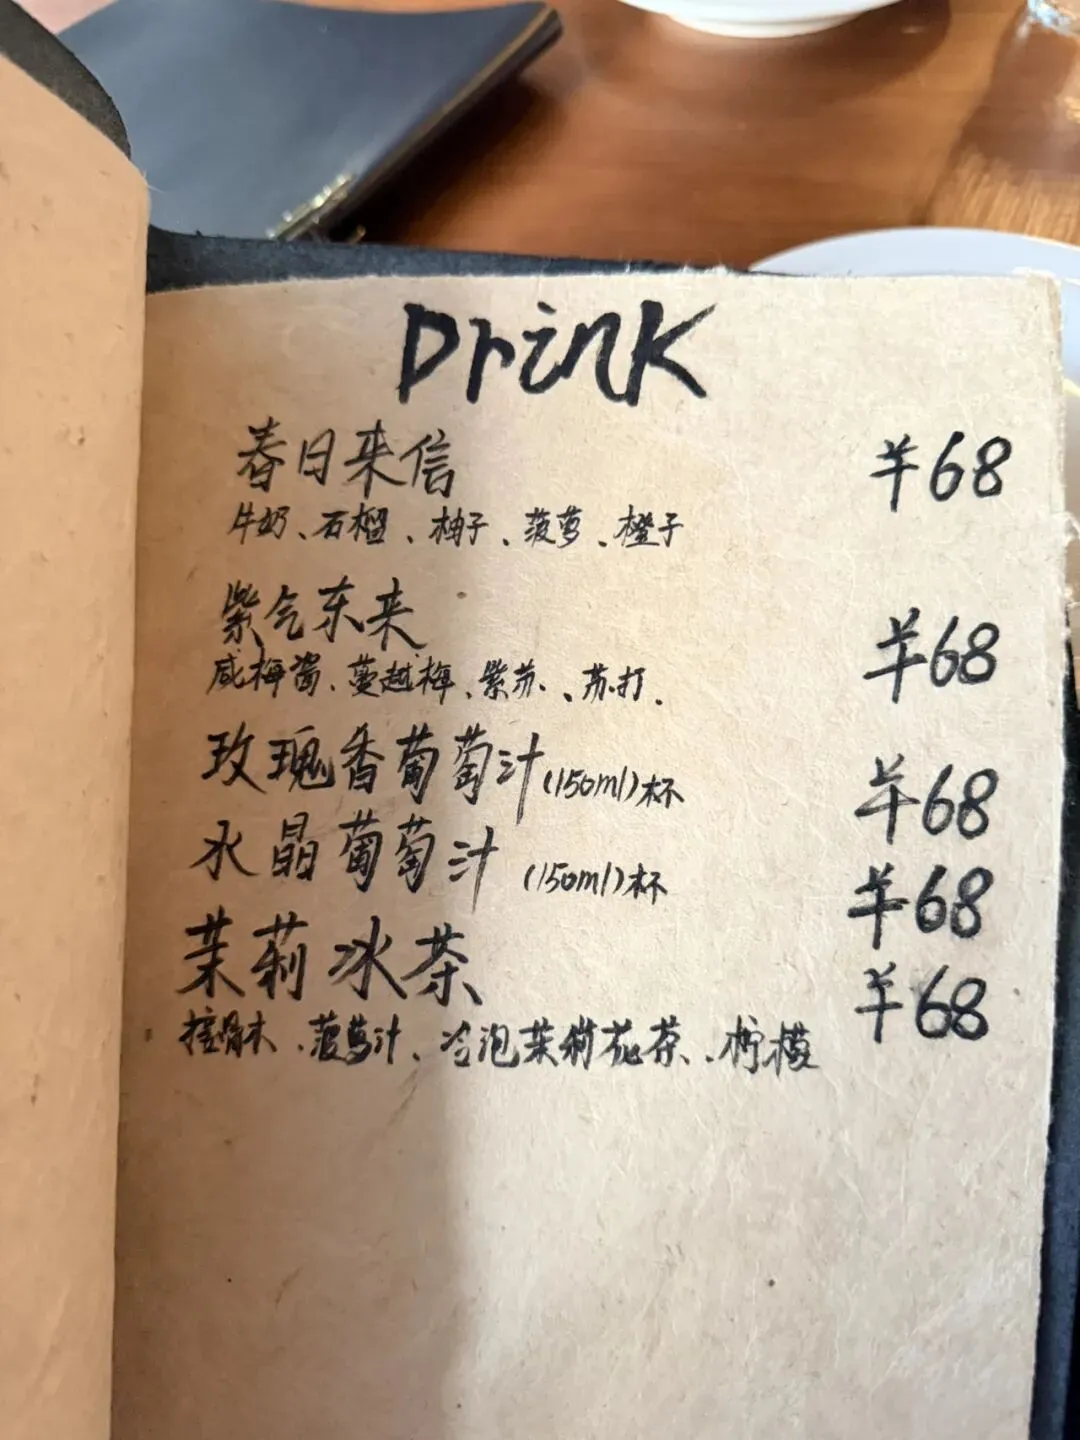 Drink
春日来信 ¥68
牛奶、石榴、柚子、菠萝、橙子
紫气东来 ¥68
咸梅酱、蔓越梅、紫苏、苏打.
玫瑰香葡萄汁(150ml)杯 ¥68
水晶葡萄汁(150ml)杯 ¥68
茉莉冰茶 ¥68
接骨木、菠萝汁、冷泡茉莉花茶、柠檬